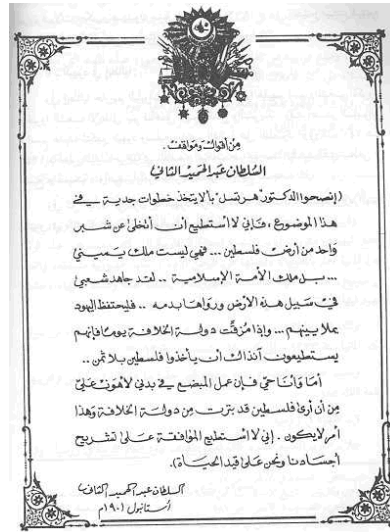 من أقواله ومواقفه .
السلطان عبد الحميد الثاني
(إنصحوا الدكتور "هرتسل" بألا يتخذ خطوات جدية في
هذا الموضوع ، فإني لا استطيع أن أتخلى عن شبر
واحد من أرض فلسطين ... فهي ليست ملك يميني
... بل ملك الأمة الإسلامية .. لقد جاهد شعبي
في سبيل هذه الأرض ورواها بدمه .. فليحتفظ اليهود
بملايينهم ... وإذا مزقت دولة الخلافة يوماً فإنهم
يستطيعون آنذاك أن يأخذوا فلسطين بلا ثمن ..
أما وأنا حيّ فإن عمل المبضع في بدني لأهون عليّ
من أن أرى فلسطين قد بترت من دولة الخلافة وهذا
أمر لا يكون . إني لا استطيع الموافقة على تشريح
أجسادنا ونحن على قيد الحياة ).
السلطان عبد الحميد الثاني
استانبول ١٩٠١م